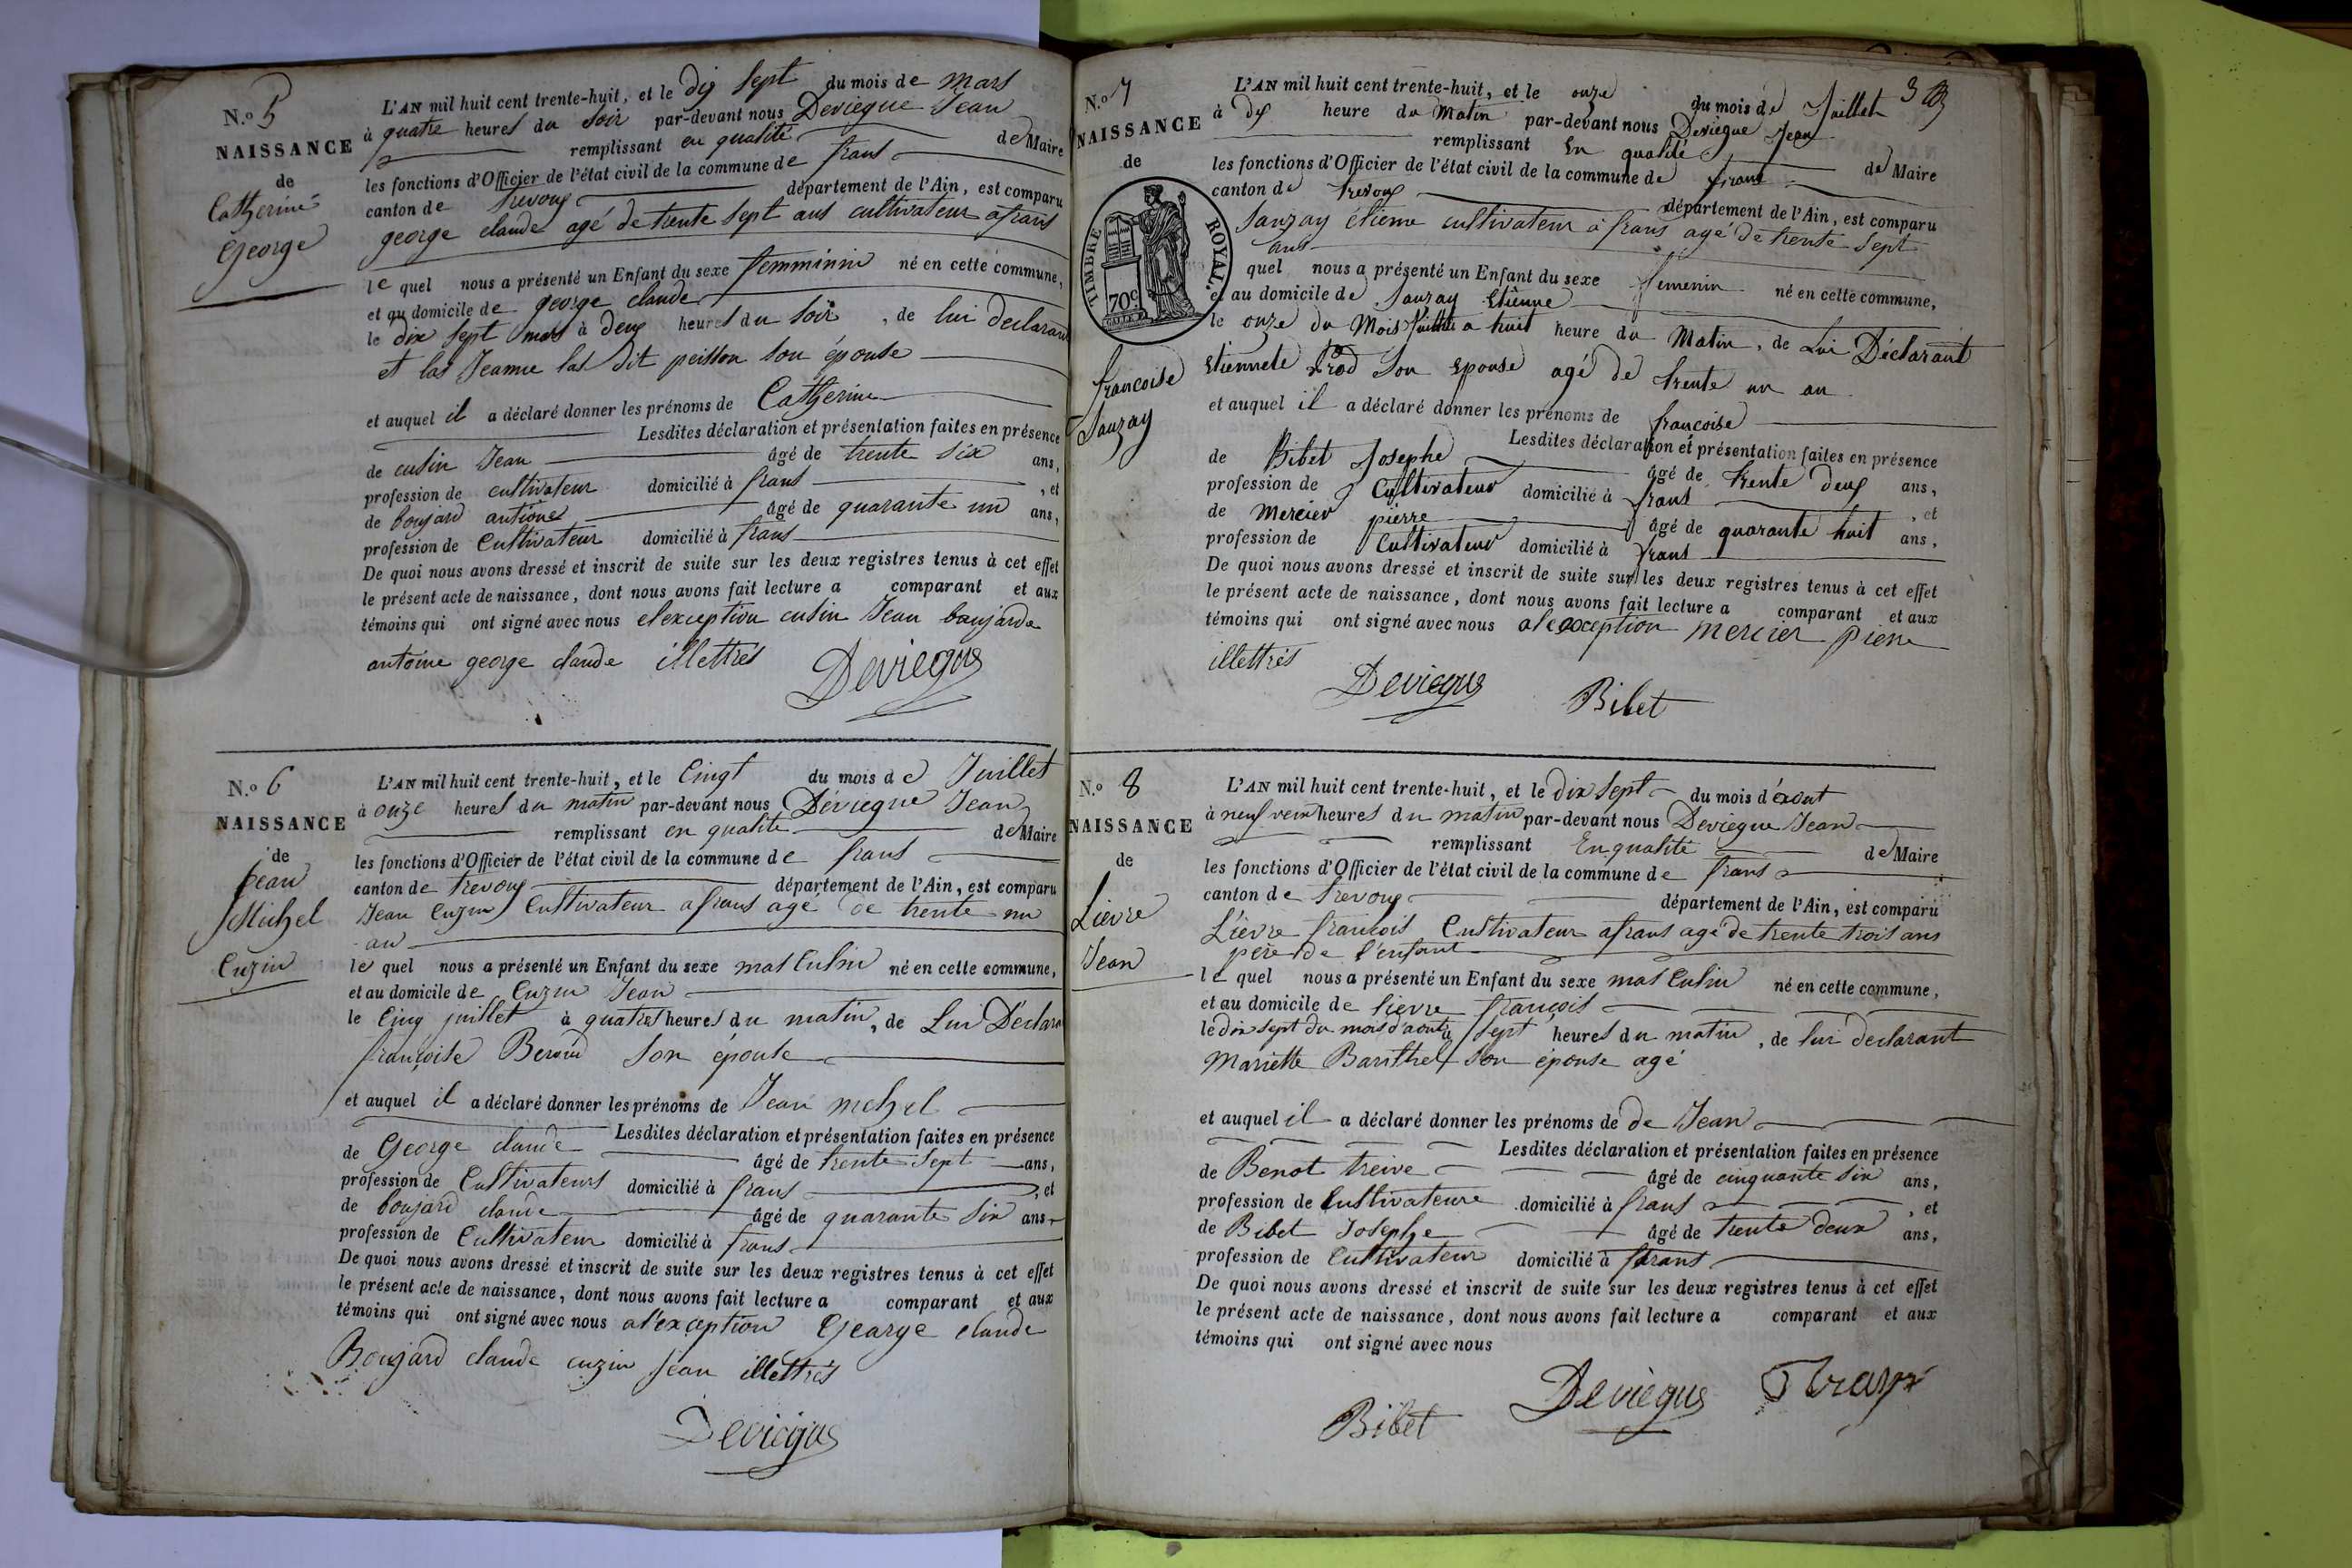 N.o 5
NAISSANCE
de
Catherine
George
L'AN mil huit cent trente-huit, et le dix sept du mois de mars
à quatre heures du soir par-devant nous Deviegue Jean
remplissant en qualité de Maire
les fonctions d'Officier de l'état civil de la commune de frans
canton de trevoux département de l'Ain, est comparu
george claude agé de trente sept ans cultivateur a frans
le quel nous a présenté un Enfant du sexe femminin né en cette commune,
et au domicile de george claude
le dix sept mars à deux heures du soir, de lui declarant
et las Jeanne las dit peisson son épouse
et auquel il a déclaré donner les prénoms de Catherine
Lesdites déclaration et présentation faites en présence
de cusin Jean âgé de trente six ans,
profession de cultivateur domicilié à frans, et
de boujard antione âgé de quarante un ans,
profession de Cultivateur domicilié à frans
De quoi nous avons dressé et inscrit de suite sur les deux registres tenus à cet effet
le présent acte de naissance, dont nous avons fait lecture a comparant et aux
témoins qui ont signé avec nous elexception cusin Jean boujarde
antoine george claude illettrés
Deviegue
N.o 6
NAISSANCE
de
Jean
Michel
Cuzin
L'AN mil huit cent trente-huit, et le Cinqt du mois de Juillet
à onze heures du matin par-devant nous Déviegue Jean
remplissant en qualité de Maire
les fonctions d'Officier de l'état civil de la commune de frans
canton de trevoux département de l'Ain, est comparu
Jean Cuzin Cultivateur a frans agé de trente un
an
le quel nous a présenté un Enfant du sexe masculin né en cette commune,
et au domicile de Cuzin Jean
le Cinq juillet à quatres heures du matin, de Lui Déclara
françoise Beroud son épouse
et auquel il a déclaré donner les prénoms de Jean mchel
Lesdites déclaration et présentation faites en présence
de George claude âgé de trente sept ans,
profession de Cultivateurs domicilié à frans, et
de boujard claude âgé de quarante six ans
profession de Cultivateur domicilié à frans
De quoi nous avons dressé et inscrit de suite sur les deux registres tenus à cet effet
le présent acte de naissance, dont nous avons fait lecture a comparant et aux
témoins qui ont signé avec nous a l'exception George claude
Boujard claude cuzin jean illettrés
Deviegue
N.o 7
NAISSANCE
de
TIMBRE ROYAL.
70c.
francoise
Sauzay
L'AN mil huit cent trente-huit, et le onze du mois de Juillet 3
à dix heure du Matin par-devant nous Deviegue Jean
remplissant En qualité de Maire
les fonctions d'Officier de l'état civil de la commune de frans
canton de trevoux département de l'Ain, est comparu
Sauzay étiene cultivateur à frans agé de trente sept
ans
quel nous a présenté un Enfant du sexe femenin né en cette commune,
et au domicile de Sauzay Etienne
le onze du Mois Juillet a huit heure du Matin, de Lui Déclarant
Etiennete son Epouse agé de trente un an
et auquel il a déclaré donner les prénoms de francoise
Lesdites déclaration et présentation faites en présence
de Bibet Josephe âgé de trente deux ans,
profession de Cultivateur domicilié à frans, et
de Mercier pierre âgé de quarante huit ans,
profession de Cultivateur domicilié à frans
De quoi nous avons dressé et inscrit de suite sur les deux registres tenus à cet effet
le présent acte de naissance, dont nous avons fait lecture a comparant et aux
témoins qui ont signé avec nous alexception mercier piere
illettrés
Deviegue Bibet
N.o 8
NAISSANCE
de
Lievre
Jean
L'AN mil huit cent trente-huit, et le dix sept du mois d'aout
à neuf heures du matin par-devant nous Deviegue Jean
remplissant En qualité de Maire
les fonctions d'Officier de l'état civil de la commune de frans
canton de trevoux département de l'Ain, est comparu
Lièvre francois Cultivateur a frans agé de trente trois ans
père de l'enfant
le quel nous a présenté un Enfant du sexe masculin né en cette commune,
et au domicile de lievre françois
le dix sept du mois d'aout a sept heures du matin, de lui declarant
Mariette Barithel son épouse agé
et auquel il a déclaré donner les prénoms de de Jean
Lesdites déclaration et présentation faites en présence
de Benot treive âgé de cinquante six ans,
profession de Cultivateure domicilié à frans, et
de Bibet Josephe âgé de trente deux ans,
profession de Cultivateur domicilié à frans
De quoi nous avons dressé et inscrit de suite sur les deux registres tenus à cet effet
le présent acte de naissance, dont nous avons fait lecture a comparant et aux
témoins qui ont signé avec nous
Bibet Deviegue